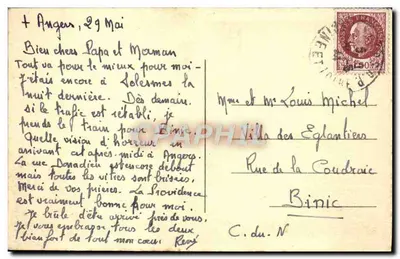 + Angers, 29 Mai
Bien chers Papa et Maman
Tout va pour le mieux pour moi -
J'étais encore à Solesmes la
nuit dernière. Dès demain,
si le trafic est rétabli, je
prends le train pour Binic.
Quelle vision d'horreur en
arrivant cet après-midi à Angers.
La rue Donadieu est encore debout
mais toutes les vitres sont brisées.
Merci de vos prières. La Providence
est vraiment bonne pour moi.
Je brûle d'être arrivé près de vous.
Je vous embrasse tous les deux
bien fort de tout mon cœur. René
Mme et Mr Louis Michel
Villa des Eglantiers
Rue de la Coudraie
Binic
C. du. N